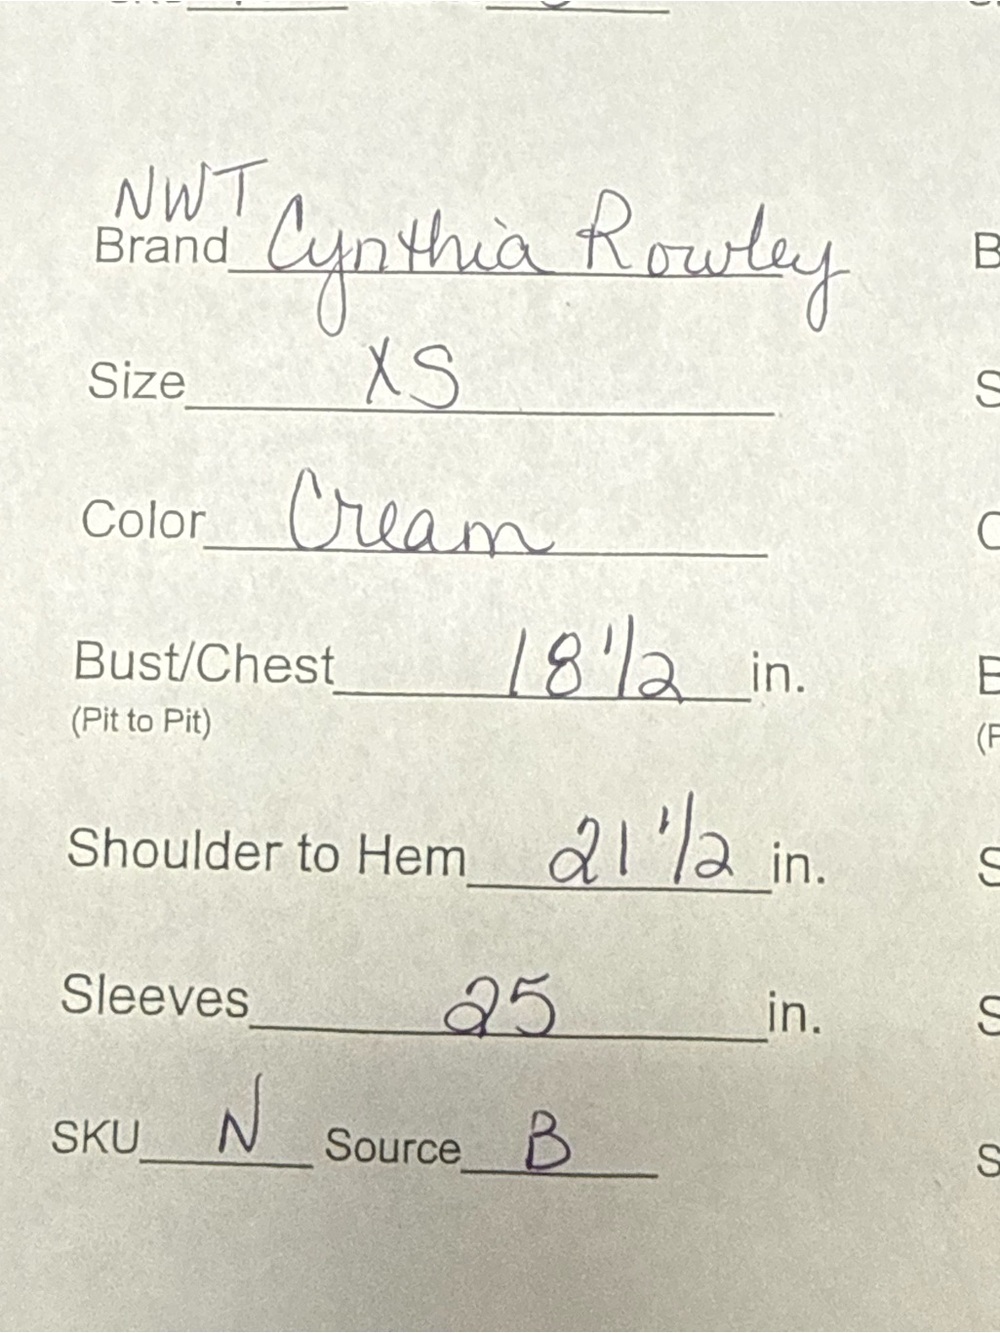 NWT
Brand Cynthia Rowley
Size XS
Color Cream
Bust/Chest 18 1/2 in.
(Pit to Pit)
Shoulder to Hem 21 1/2 in.
Sleeves 25 in.
SKU N Source B